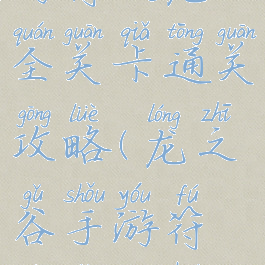 quán guān qiǎ tōng guān
全关卡通关
gōng lüè lóng zhī
攻略(龙之
gǔ shǒu yóu fú
谷手游符